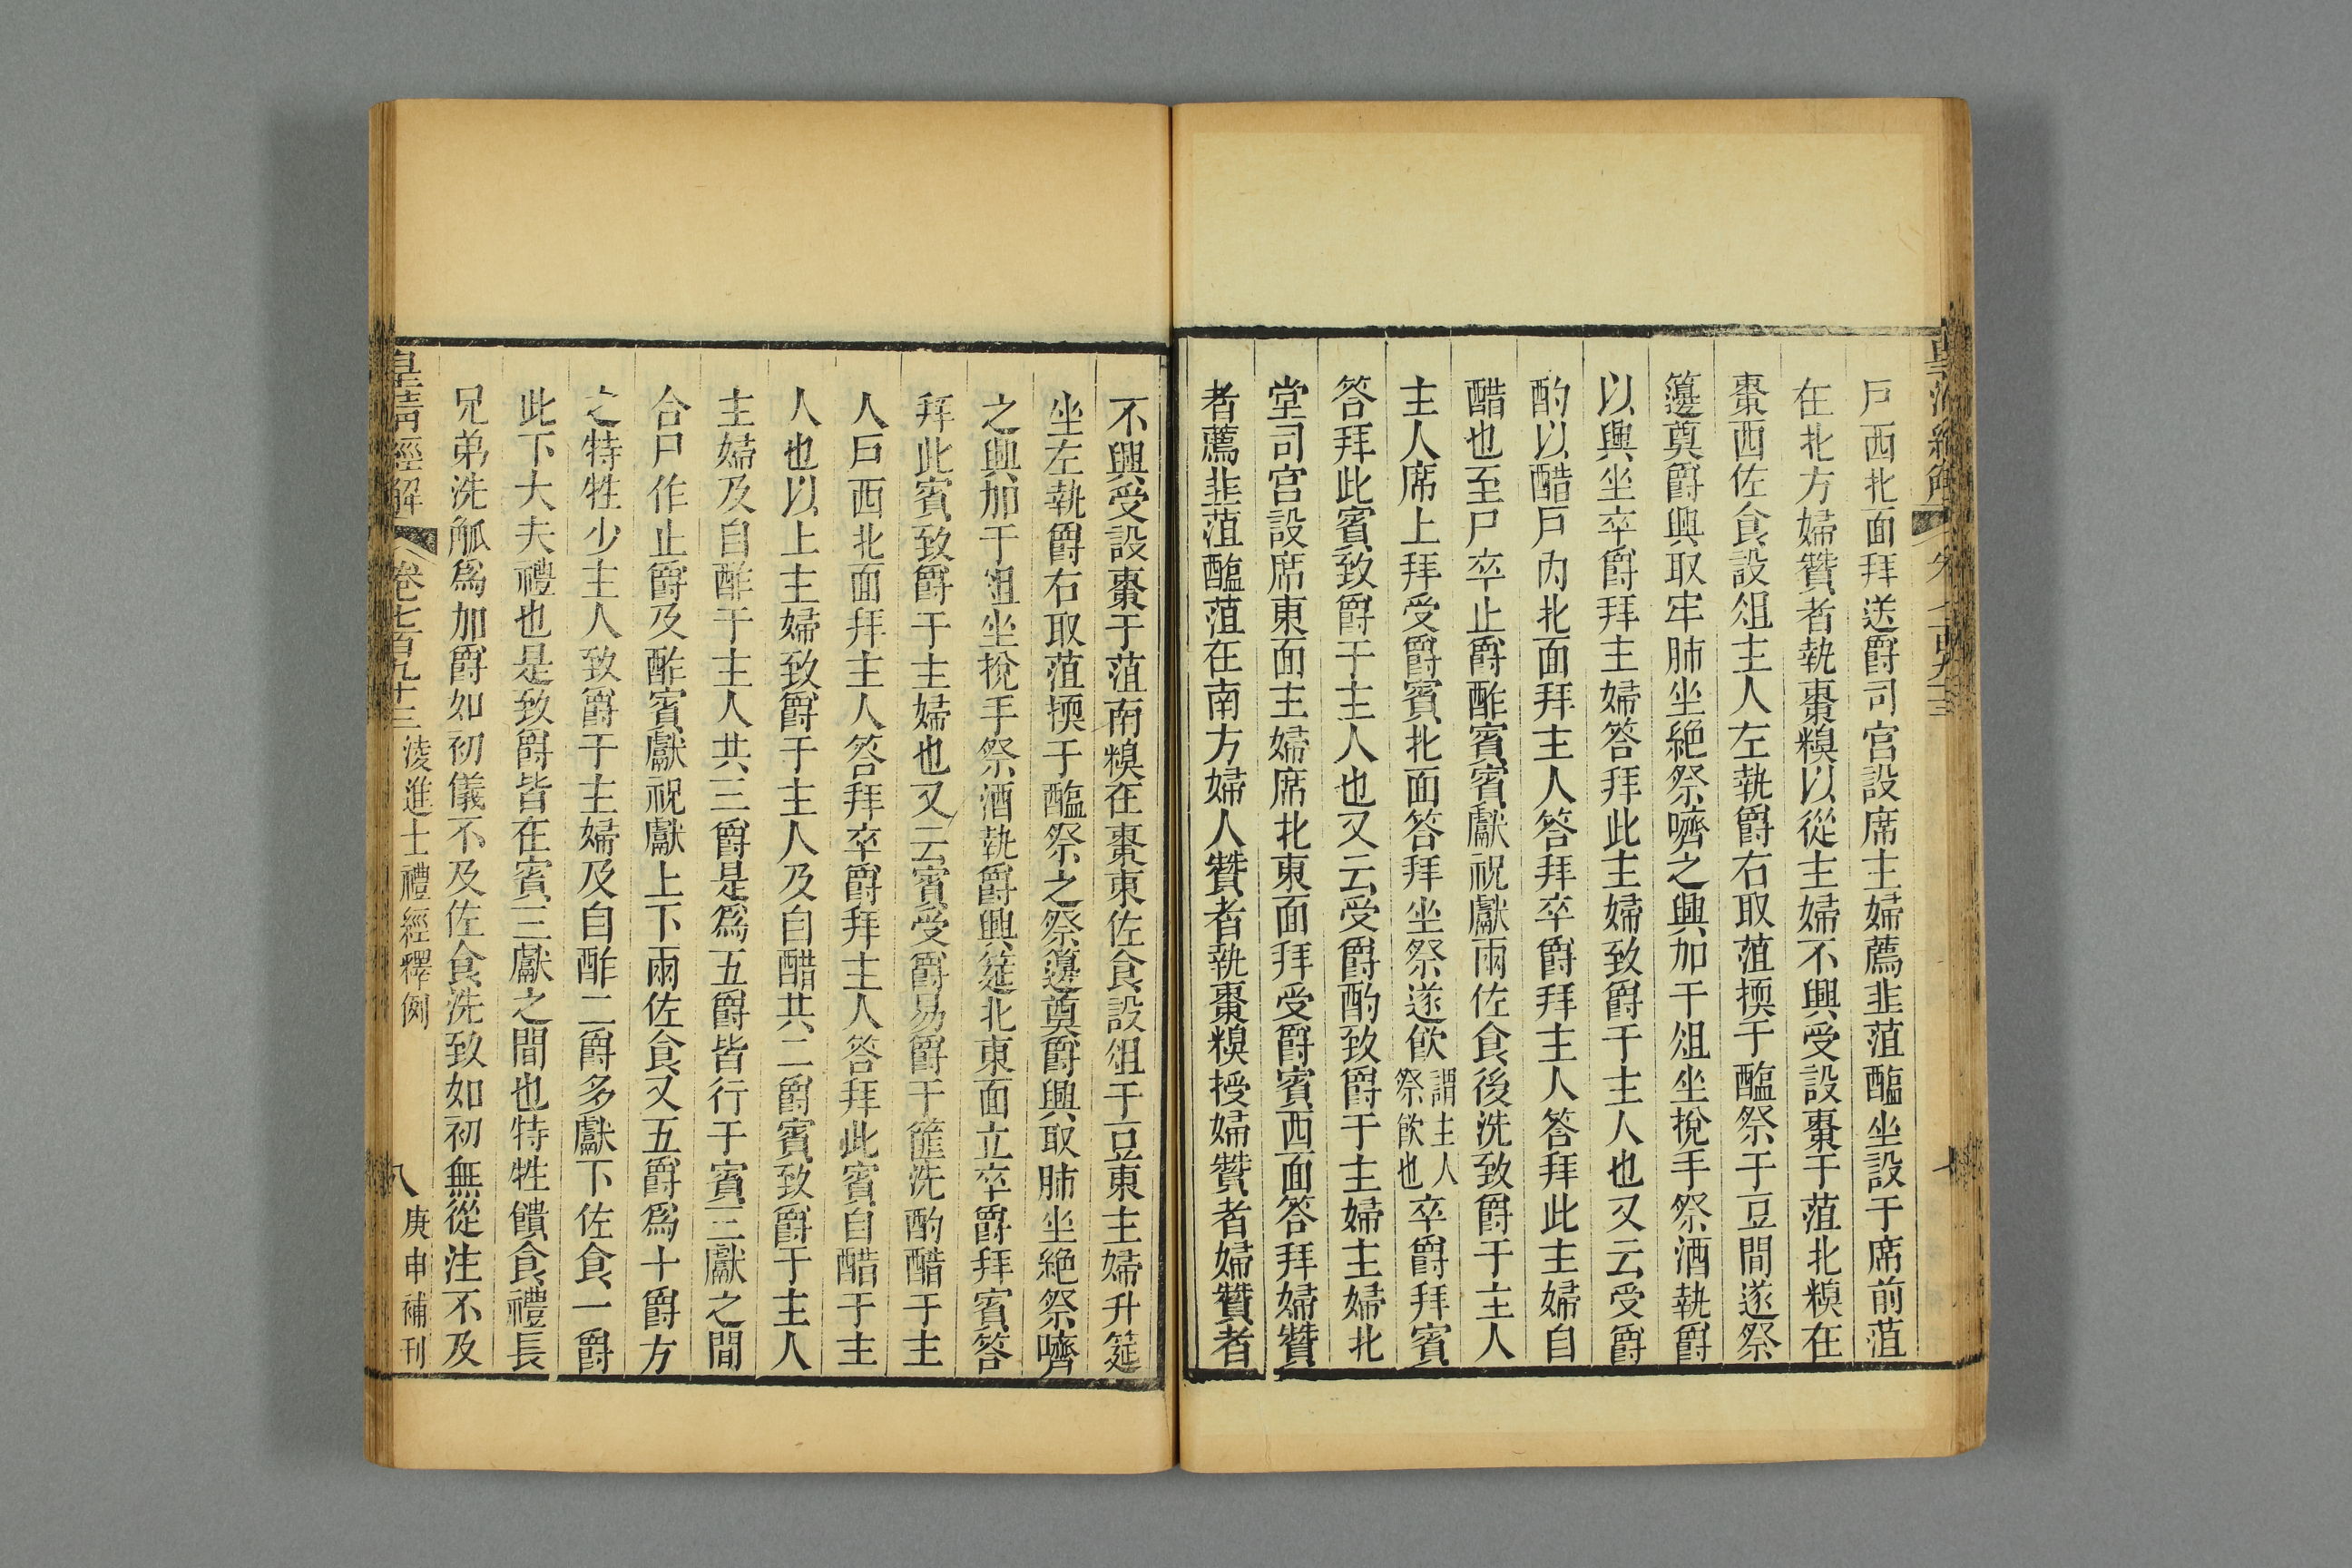 戶西北面拜送爵司宮設席主婦薦韭菹醢坐設于席前菹
在北方婦贊者執棗糗以從主婦不興受設棗于菹北糗在
棗西佐食設俎主人左執爵右取菹擩于醢祭于豆間遂祭
籩奠爵興取牢肺坐絶祭嚌之興加于俎坐挩手祭酒執爵
以興坐卒爵拜主婦答拜此主婦致爵于主人也又云受爵
酌以醋戶內北面拜主人答拜卒爵拜主人答拜此主婦自
醋也至尸卒止爵酢賓賓獻祝獻兩佐食後洗致爵于主人
主人席上拜受爵賓北面答拜坐祭遂飮謂主人祭飮也卒爵拜賓
答拜此賓致爵于主人也又云受爵酌致爵于主婦主婦北
堂司宮設席東面主婦席北東面拜受爵賓西面答拜婦贊
者薦韭菹醢菹在南方婦人贊者執棗糗授婦贊者婦贊者
不興受設棗于菹南糗在棗東佐食設俎于豆東主婦升筵
坐左執爵右取菹擩于醢祭之祭籩奠爵興取肺坐絶祭嚌
之興加于俎坐挩手祭酒執爵興筵北東面立卒爵拜賓答
拜此賓致爵于主婦也又云賓受爵易爵于篚洗酌醋于主
人戶西北面拜主人答拜卒爵拜主人答拜此賓自醋于主
人也以上主婦致爵于主人及自醋共二爵賓致爵于主人
主婦及自酢于主人共三爵是爲五爵皆行于賓三獻之間
合尸作止爵及酢賓獻祝獻上下兩佐食又五爵爲十爵方
之特牲少主人致爵于主婦及自酢二爵多獻下佐食一爵
此下大夫禮也是致爵皆在賓三獻之間也特牲饋食禮長
兄弟洗觚爲加爵如初儀不及佐食洗致如初無從注不及
皇淸經解 卷七百九十三 淩進士禮經釋例 八 庚申補刊